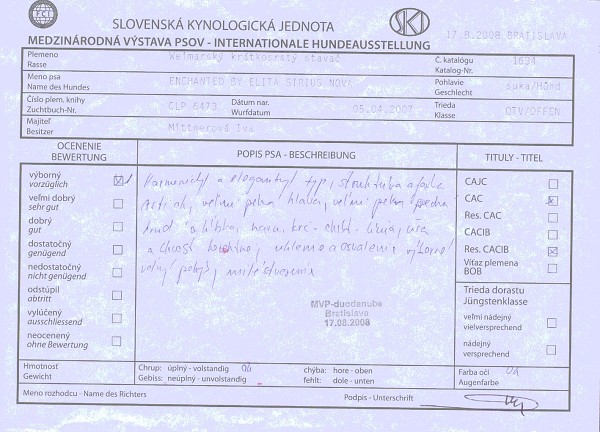 FCI
SLOVENSKÁ KYNOLOGICKÁ JEDNOTA
SKJ
MEDZINÁRODNÁ VÝSTAVA PSOV - INTERNATIONALE HUNDEAUSSTELLUNG
17.8.2008 BRATISLAVA
Plemeno
Rasse
Weimarský krátkosrstý stavač
Č. katalógu
Katalog-Nr.
1634
Meno psa
Name des Hundes
ENCHANTED BY ELITA SIRIUS NOVA
Pohlavie
Geschlecht
suka/Hünd
Číslo plem. knihy
Zuchtbuch-Nr.
CLP 6473
Dátum nar.
Wurfdatum
05.04.2007
Trieda
Klasse
OTV/OFFEN
Majiteľ
Besitzer
Mittnerová Iva
OCENENIE
BEWERTUNG
POPIS PSA - BESCHREIBUNG
TITULY - TITEL
výborný
vorzüglich
veľmi dobrý
sehr gut
dobrý
gut
dostatočný
genügend
nedostatočný
nicht genügend
odstúpil
abtritt
vylúčený
ausschliessend
neocenený
ohne Bewertung
Harmonický a elegantný typ, štruktúra a farba
srsti ok, veľmi pekná hlava, veľmi pekná predná
hruď a hĺbka,
a chvost korektne, uhlenie a osvalenie výborné
veľký pohyb, milé
MVP-duodanube
Bratislava
17.08.2008
CAJC
CAC
Res. CAC
CACIB
Res. CACIB
Víťaz plemena
BOB
Trieda dorastu
Jüngstenklasse
veľmi nádejný
vielversprechend
nádejný
versprechend
Hmotnosť
Gewicht
Chrup: úplný - volstandig ok
Gebiss: neúplny - unvolstandig
chýba: hore - oben
fehlt: dole - unten
Farba očí ok
Augenfarbe
Meno rozhodcu - Name des Richters
Podpis - Unterschrift